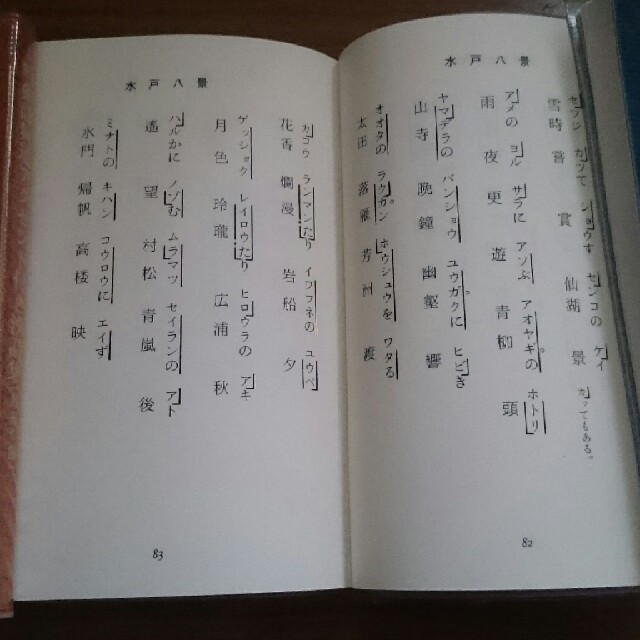 水戸八景
セツジ カつて ショウす センコの ケイ カつてもある。
雪時 嘗 賞 仙湖 景
アメの ヨル サラに アソぶ アオヤギの ホトリ
雨 夜 更 遊 青柳 頭
ヤマデラの バンショウ ユウガクに ヒビき
山寺 晩鐘 幽壑 響
オオタの ラクガン ホウシュウを ワタる
太田 落雁 芳洲 渡
82
水戸八景
カコウ ランマンたり イワフネの ユウベ
花香 爛漫 岩船 夕
ゲッショク レイロウたり ヒロウラの アキ
月色 玲瓏 広浦 秋
ハルかに ノゾむ ムラマツ セイランの アト
遙 望 村松 青嵐 後
ミナトの キハン コウロウに エイず
水門 帰帆 高楼 映
83